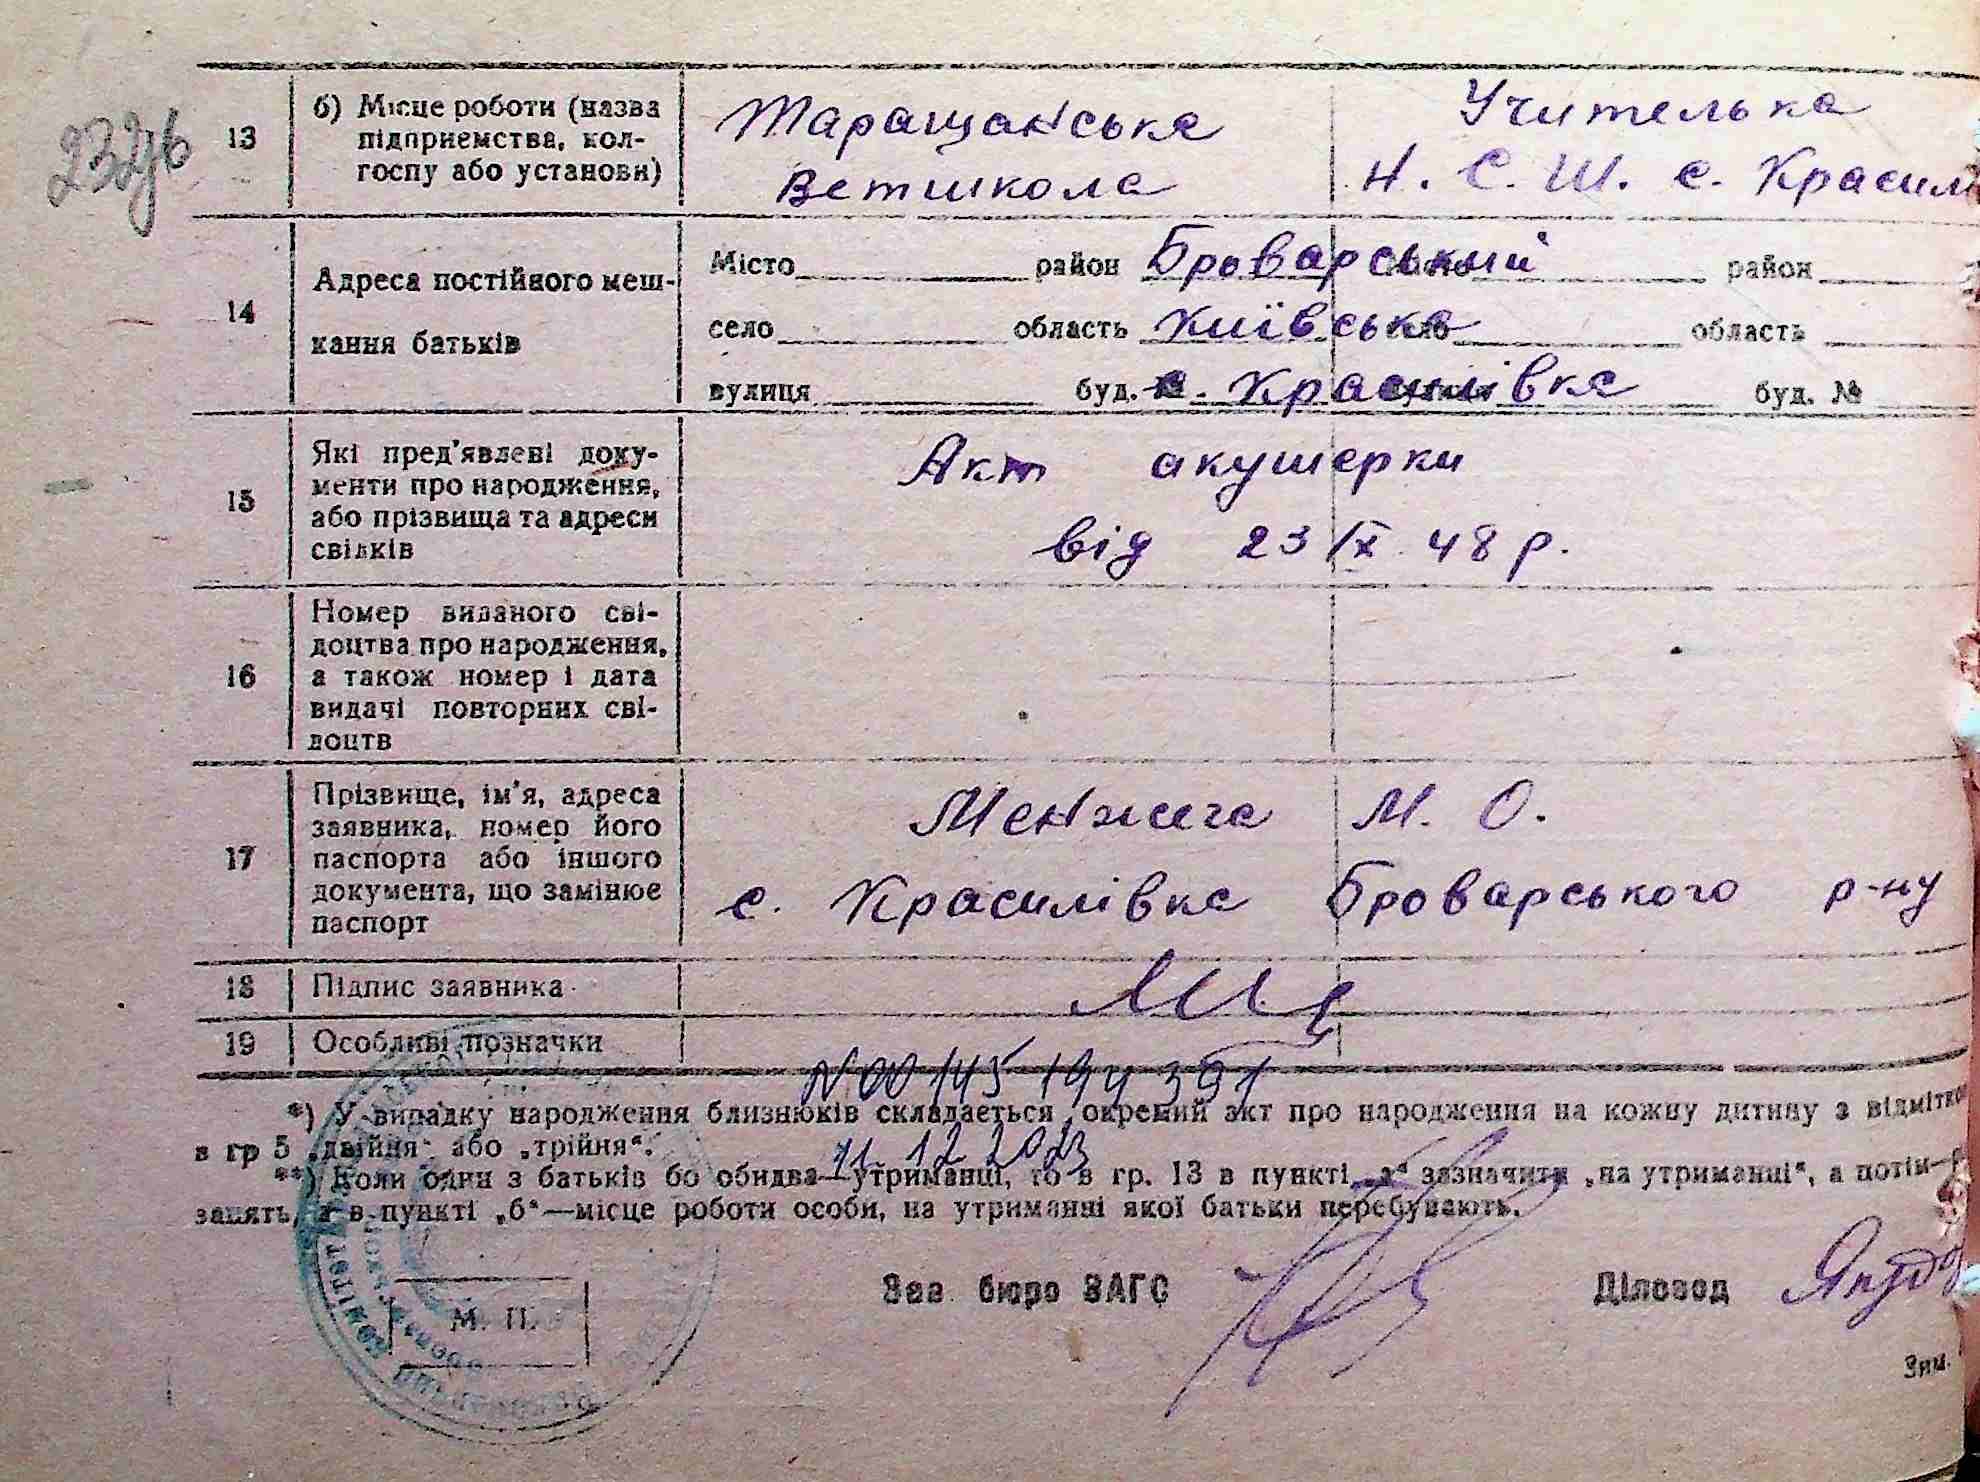 13 б) Місце роботи (назва підприємства, колгоспу або установи)
Таращанська Ветшкола
Учителька Н. С. Ш. с. Красил
14 Адреса постійного мешкання батьків
Місто район Броварський район
село область Київська село область
вулиця буд. с. Красилівка буд. №
15 Які пред'явлені документи про народження, або прізвища та адреси свідків
Акт акушерки
від 23/ІХ 48 р.
16 Номер виданого свідоцтва про народження, а також номер і дата видачі повторних свідоцтв
17 Прізвище, ім'я, адреса заявника, номер його паспорта або іншого документа, що замінює паспорт
Менжега М. О.
с. Красилівка Броварського р-ну
18 Підпис заявника
19 Особливі позначки
N 00145194391
*) У випадку народження близнюків складається окремий акт про народження на кожну дитину з відміткою
в гр 5 „двійня" або „трійня".
11.12.2023
**) Коли один з батьків бо обидва—утриманці, то в гр. 13 в пункті „а" зазначити „на утриманні", а потім—
занять, а в пункті „б"—місце роботи особи, на утриманні якої батьки перебувають.
Зав. бюро ЗАГС Діловод
М. П.
Зам.